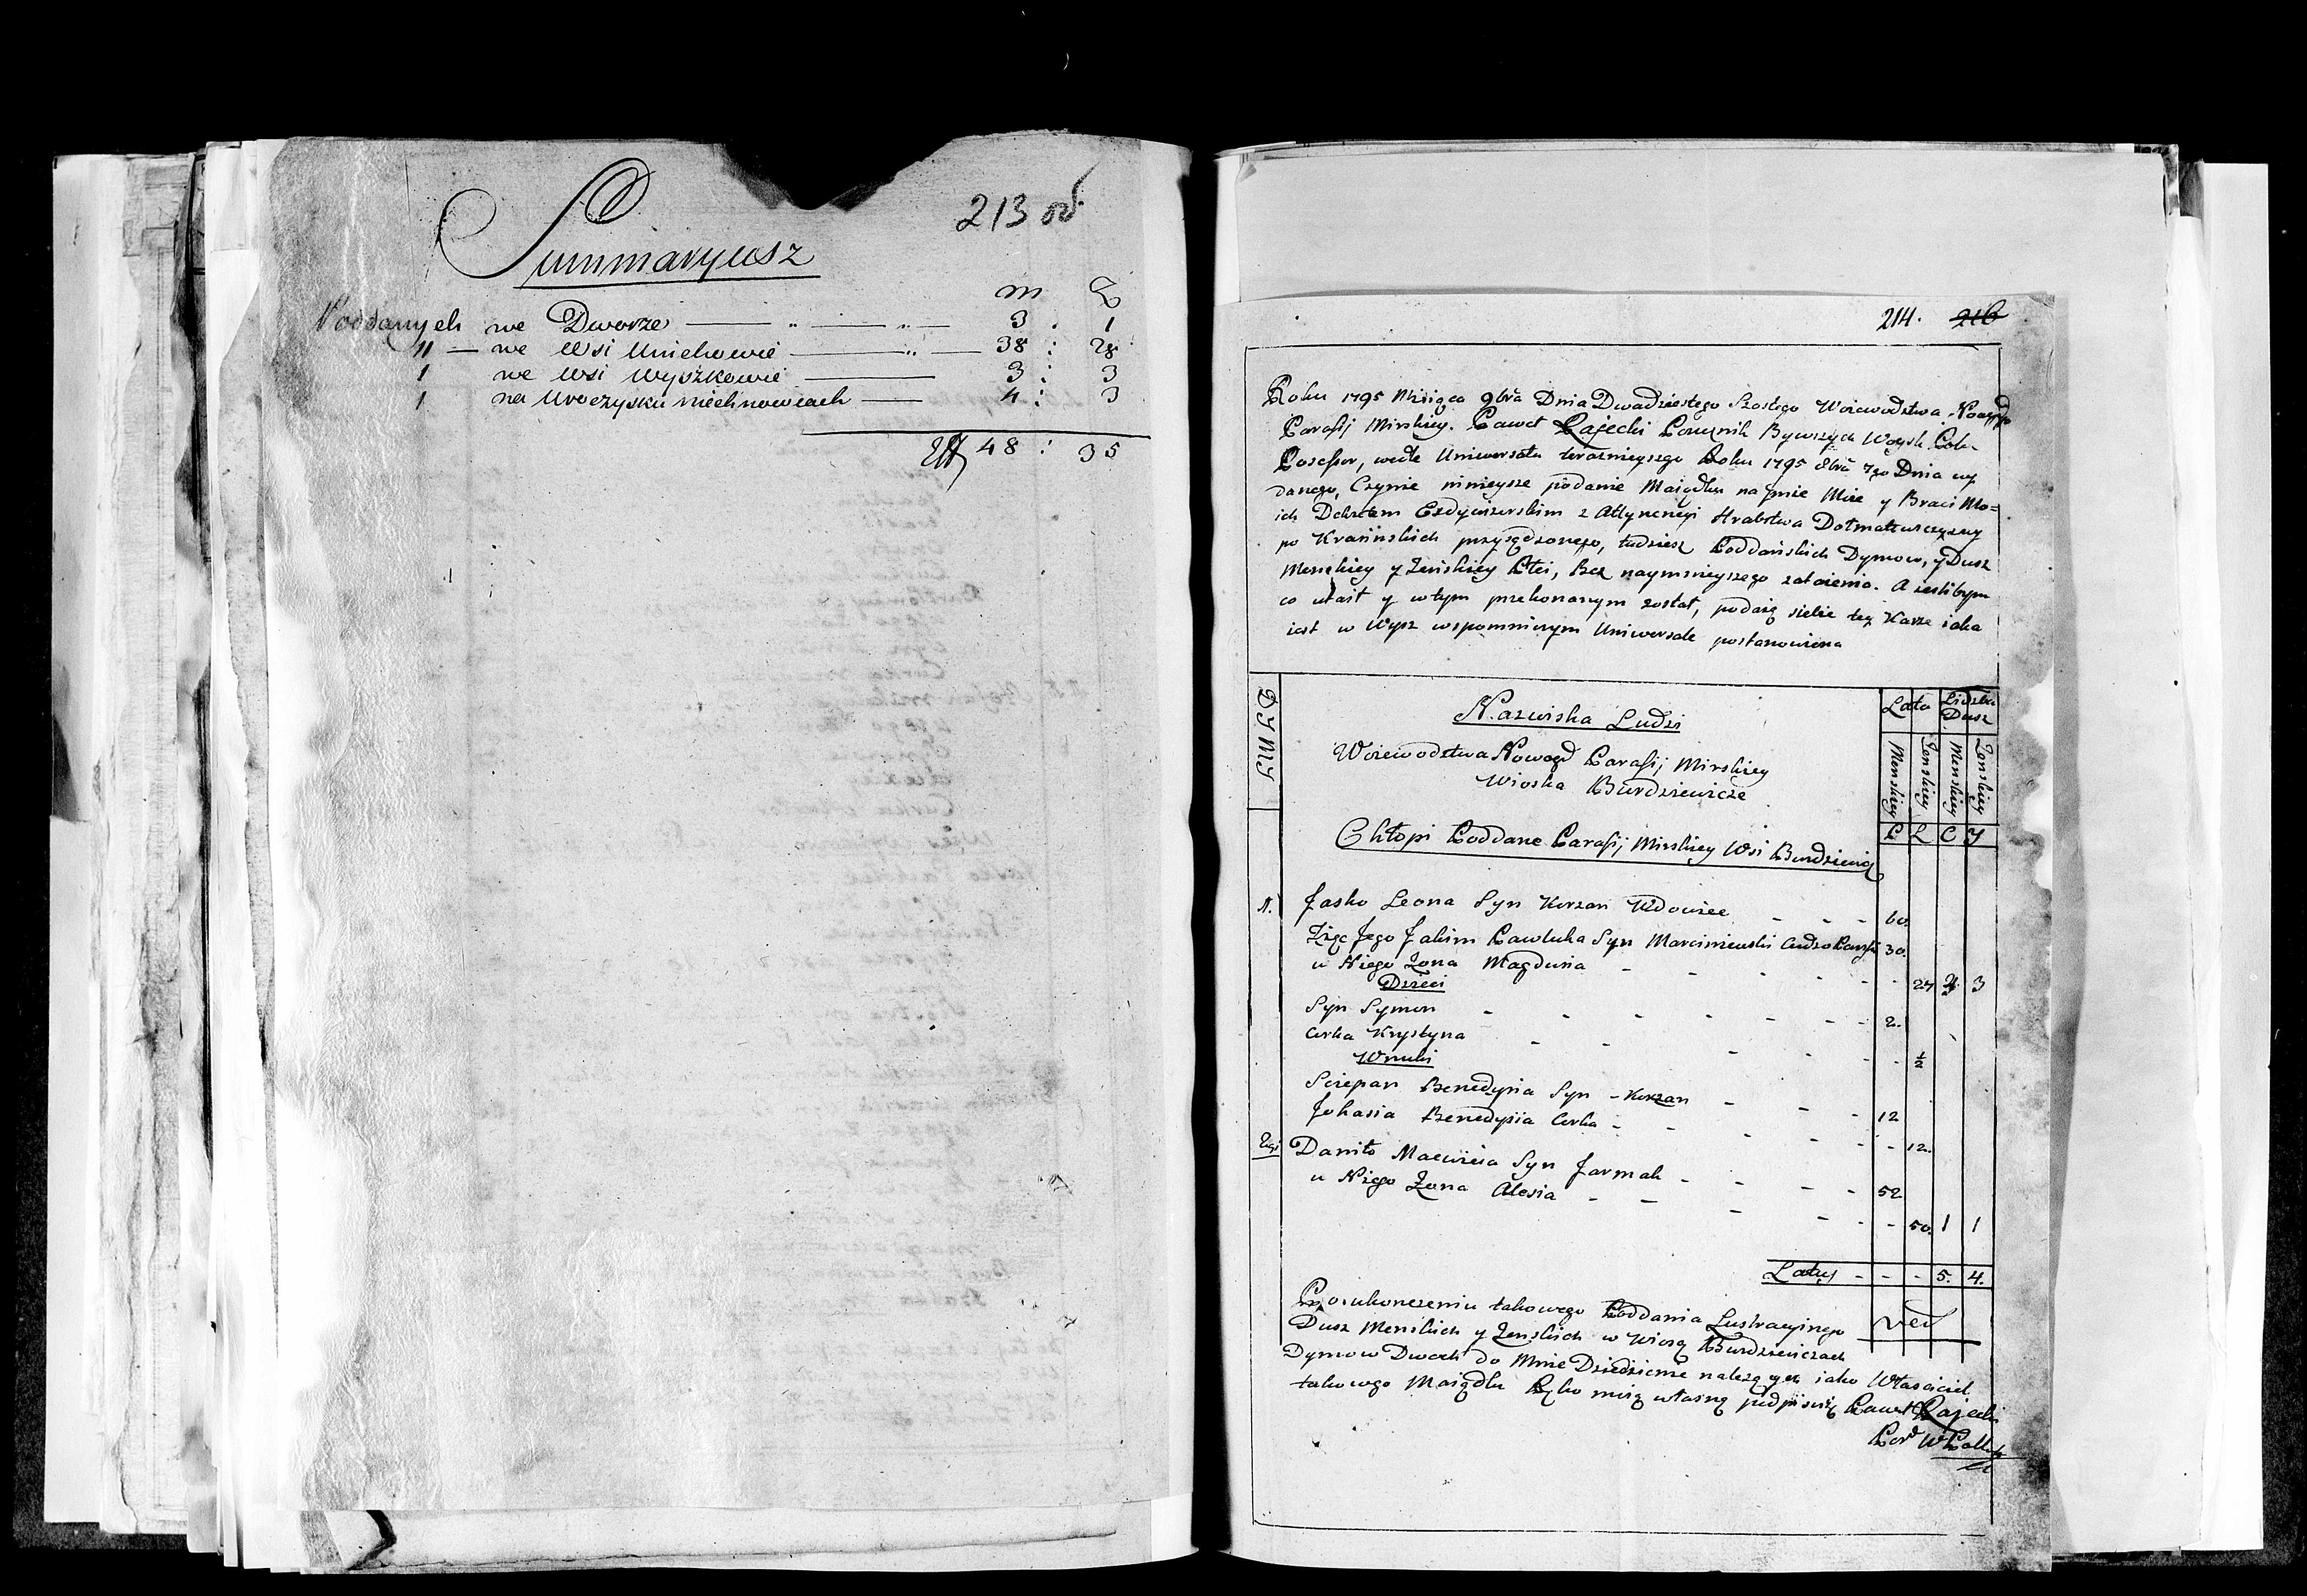 213 об
Summaryusz
m Z
Poddanych we Dworze 3 : 1
11 — we Wsi Uniehowie 38 : 28
1 we Wsi Wyszkowie 3 : 3
1 na Uroczysku Miechnowicach 4 : 3
48 : 35
214. 216
Roku 1795 Miesiąca 9bra Dnia Dwadziestego Szostego Woiewodztwa Nowogd
Parafij Mirskiey. Paweł Rajecki Porucznik Bywszych Woysk Pols
Possessor, wedle Uniwersału teraznieyszego Roku 1795 8bra 7go Dnia wy
danego, Czynie ninieysze podanie Maiątku na mie Mie y Braci Mo=
ich Dekretem Exdywizorskim z Attynencyi Hrabstwa Dołmatowszczyzny
po Kraiinskich przysądzonego, tudziesz Poddańskich Dymow, y Dusz
Menskiey y Zenskiey Płci, Bez naymnieyszego zataienia. A iesli bym
co utaił y w tym przekonanym został, podaię siebie tey Karze iaka
iest w Wysz wspomnionym Uniwersale postanowiona
DYMY
Nazwiska Ludzi
Lata
Liczba Dusz
Woiewodztwa Nowogd Parafij Mirskiey
Wioska Burdziewicze
Menskiey Zenskiey Menskiey Zenskiey
P Ł C Y
Chłopi Poddane Parafij Mirskiey Wsi Burdziewicz
1. Jasko Leona Syn Korzan Wdowiec - - - 60.
Zięć Jego Jakim Pawluka Syn Marciniewski Cudzo 30.
u Niego Zona Magdusia - - - - - 24 3 3
Dzieci
Syn Symon - - - - - - 2.
Corka Krystyna - - - - - ½
Wnuki
Sciepan Benedysia Syn - Korzan - - - 12
Juhasia Benedysia Corka - - - - 12.
Danilo Maciseia Syn Jarmak - - - - 52
u Niego Zona Alesia - - - - - 50. 1 1
Latus - - - 5. 4.
Po ukonczeniu takowego Poddania Lustracyinego
Dusz Menskich y Zenskich w Wiosq Burdziewiczach
Dymow Dwoch do Mnie Dziedzicznie nalezących iako Własciciel
takowego Maiątku Ręko moią własną podpisuię Paweł Rajecki